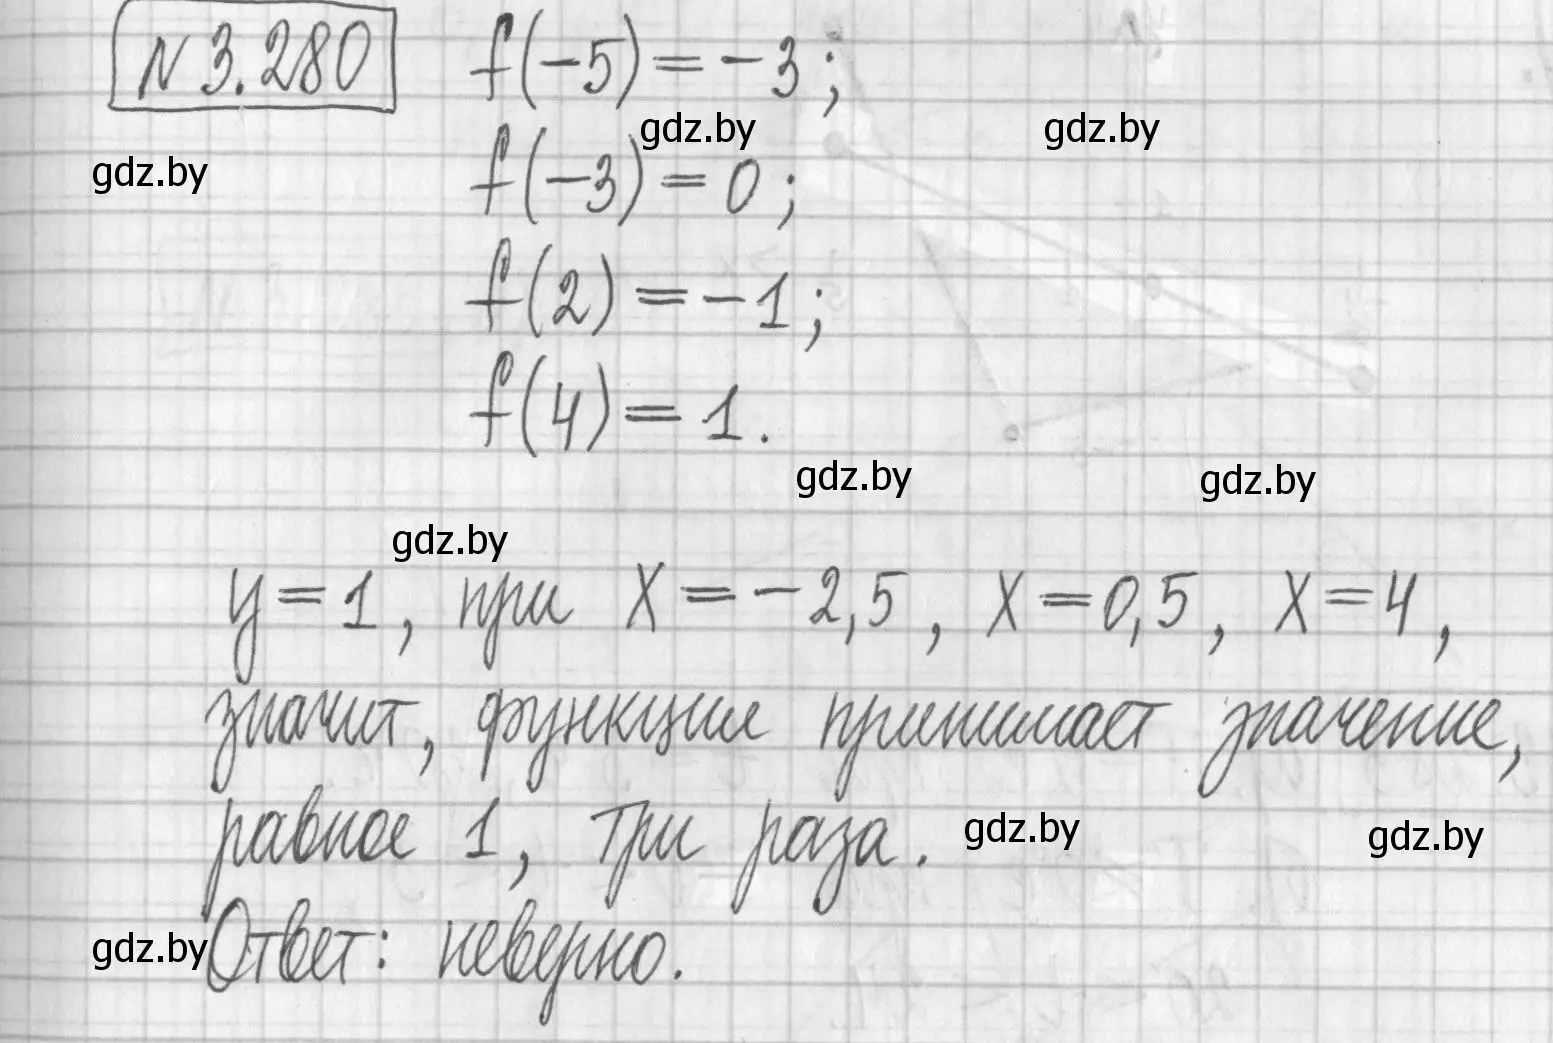 N 3.280 f(-5) = -3;
gdz.by gdz.by
gdz.by f(-3) = 0;
f(2) = -1;
f(4) = 1.
gdz.by gdz.by
gdz.by
y = 1, при x = -2,5, x = 0,5, x = 4,
значит, функция принимает значение,
равное 1, три раза.
gdz.by gdz.by
gdz.by Ответ: неверно.